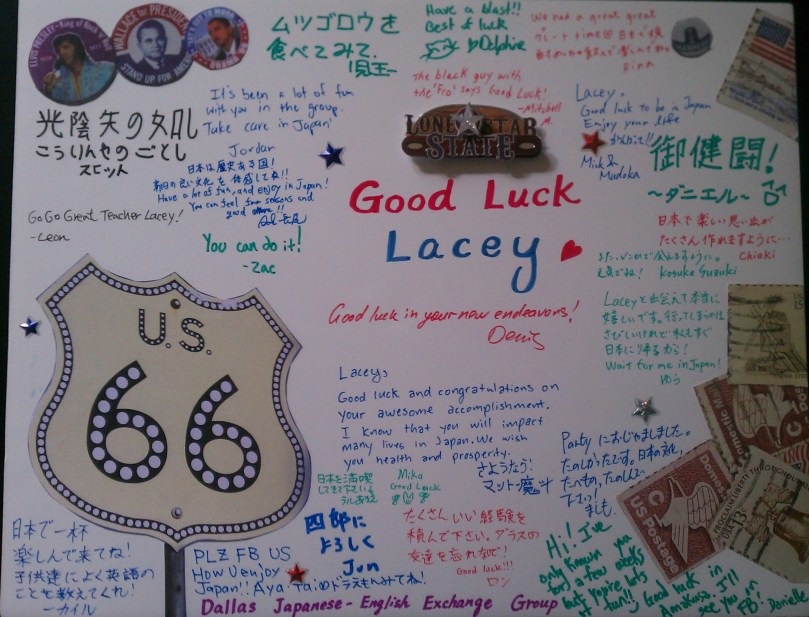 ELVIS PRESLEY - King of Rock 'n' Roll
WALLACE for PRESIDENT
STAND UP FOR AMERICA
ムツゴロウを
食べてみて、
Have a blast!!
Best of luck
Delphine
We not a great great
The black guy with
the 'Fro' says Good Luck!
-Mitchell
M.
光陰矢の如し
こういんやのごとし
スピット
It's been a lot of fun
with you in the group.
Take care in Japan
Jordan
日本は歴史ある国!
Have a lot of fun, and enjoy in Japan!
You can feel four seasons and
good others!!
Go Go Great Teacher Lacey!
-Leon
You can do it!
-Zac
LONE STAR
STATE
Lacey.
Good luck to be in Japan
Enjoy your life
がんばれ!!
Mick &
Madoka
御健闘!
~ダニエル~
日本で楽しい思い出が
たくさん作れますように…
Chiaki
元気でね! Kosuke Suzuki
Good Luck
Lacey
Good luck in your new endeavors!
Denis
Laceyと出会えて本当に
嬉しいです。行ってしまうのは
さびしいけれど私もすぐ
日本に帰るから!
Wait for me in Japan!
ゆう
U.S.
66
Lacey,
Good luck and congratulations on
your awesome accomplishment.
I know that you will impact
many lives in Japan. We wish
you health and prosperity.
さようなう!
マット・魔斗
日本を満喫
してきて下さい
Mika
Good Luck
Partyにおじゃましました。
たのしかったです。日本の文化、
たべもの、たのしんで
下さい!
ましも
日本で一杯
楽しんで来てね!
子供達によく英語の
ことを教えてくれ!
-カイル
PLZ FB US
How U enjoy
Japan!! Aya・Taiのドラえもんみてね!
四郎に
よろしく
Jun
たくさんいい経験を
積んで下さい。ダラスの
友達を忘れないで!
Good luck!!!
ロン
Hi! I've
only known you
for a few weeks
but you're lots
of fun!!
Good luck in
Amakusa. I'll
see you on
FB! Danielle
US Postage
Dallas Japanese-English Exchange Group